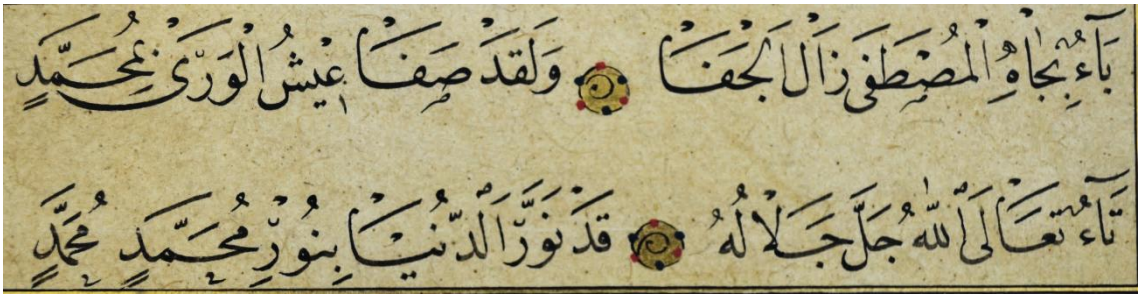 بَاءٌ بِجَاهِ الْمُصْطَفَى زَالَ الْجَفَا وَلَقَدْ صَفَا عَيْشُ الْوَرَى بِمُحَمَّدٍ
تَاءٌ تَعَالَى اللّٰهُ جَلَّ جَلَالُهُ قَدْ نَوَّرَ الدُّنْيَا بِنُورِ مُحَمَّدٍ مُحَمَّدٍ